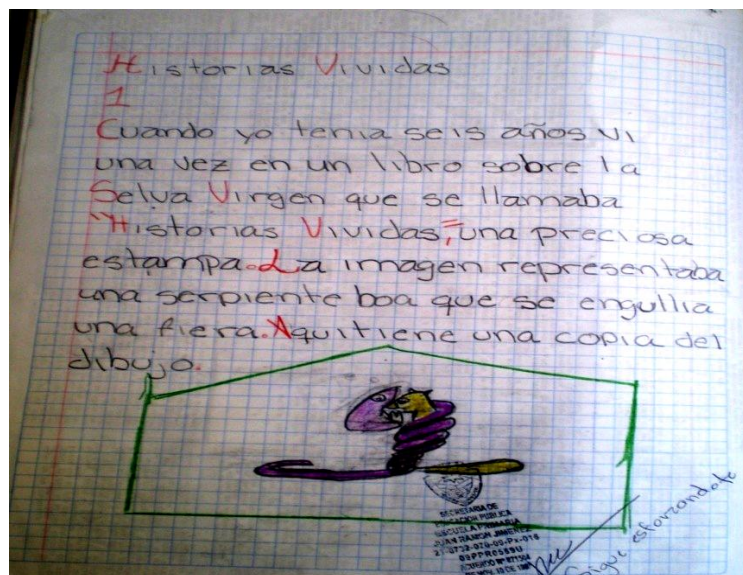 Historias Vividas
1
Cuando yo tenia seis años vi
una vez en un libro sobre la
Selva Virgen que se llamaba
"Historias Vividas", una preciosa
estampa. La imagen representaba
una serpiente boa que se engullia
una fiera. Aqui tiene una copia del
dibujo.
SECRETARIA DE
EDUCACION PUBLICA
ESCUELA PRIMARIA
JUAN RAMON JIMENEZ
Sigue esforzandote